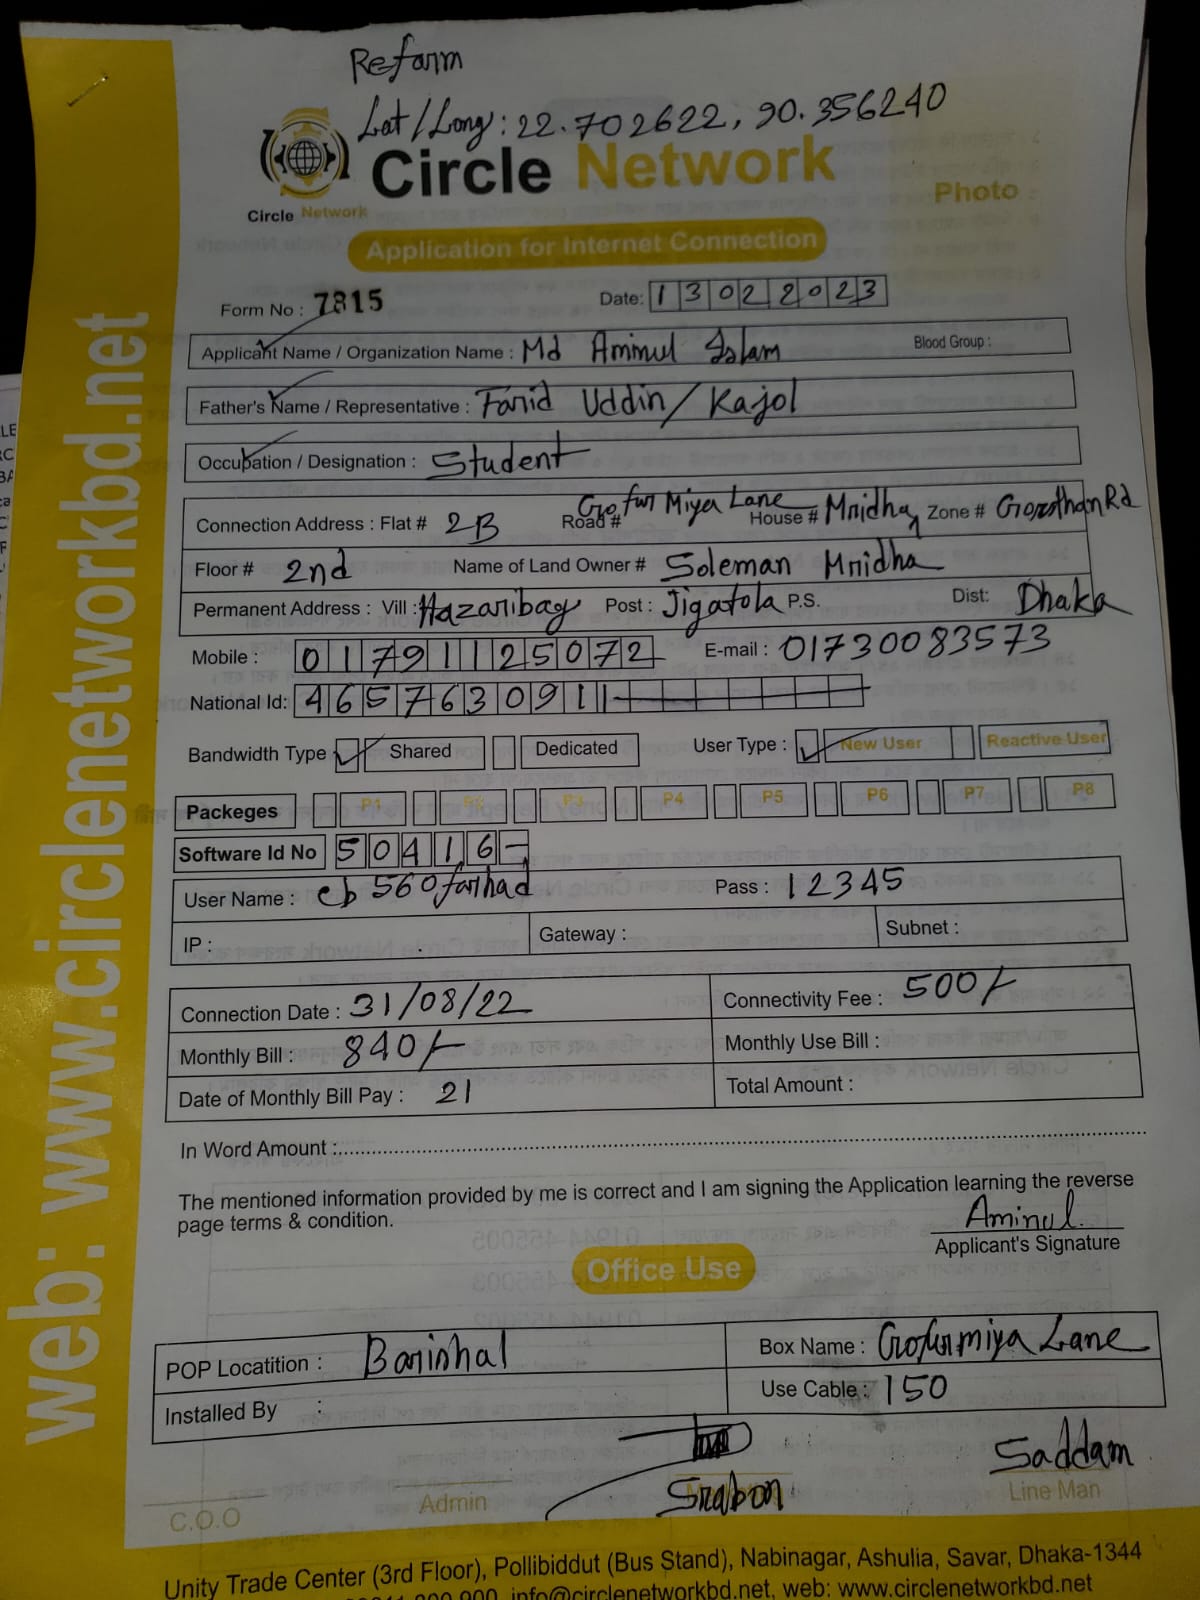 Reform
Lat/Long: 22.702622, 90.356240
Circle Network
Circle Network
Photo
Application for Internet Connection
Form No : 7815
Date: 13022023
Applicant Name / Organization Name : Md Aminul Islam Blood Group :
Father's Name / Representative : Farid Uddin/Kajol
Occupation / Designation : Student
Connection Address : Flat # 2B Road # Gofur Miya Lane House # Mridha Zone # Gorosthan Rd
Floor # 2nd Name of Land Owner # Soleman Mridha
Permanent Address : Vill : Hazaribag Post : Jigatola P.S. Dist: Dhaka
Mobile : 01791125072 E-mail : 01730083573
National Id: 4657630911
Bandwidth Type Shared Dedicated User Type : New User Reactive User
Packeges P1 P2 P3 P4 P5 P6 P7 P8
Software Id No 50416-
User Name : cb560farhad Pass : 12345
IP : Gateway : Subnet :
Connection Date : 31/08/22 Connectivity Fee : 500/-
Monthly Bill : 840/- Monthly Use Bill :
Date of Monthly Bill Pay : 21 Total Amount :
In Word Amount :
The mentioned information provided by me is correct and I am signing the Application learning the reverse
page terms & condition.
Aminul
Applicant's Signature
Office Use
POP Locatition : Barishal Box Name : Gofurmiya Lane
Installed By : Use Cable : 150
Srabon
Saddam
C.O.O Admin Line Man
Unity Trade Center (3rd Floor), Pollibiddut (Bus Stand), Nabinagar, Ashulia, Savar, Dhaka-1344
info@circlenetworkbd.net, web: www.circlenetworkbd.net
web: www.circlenetworkbd.net